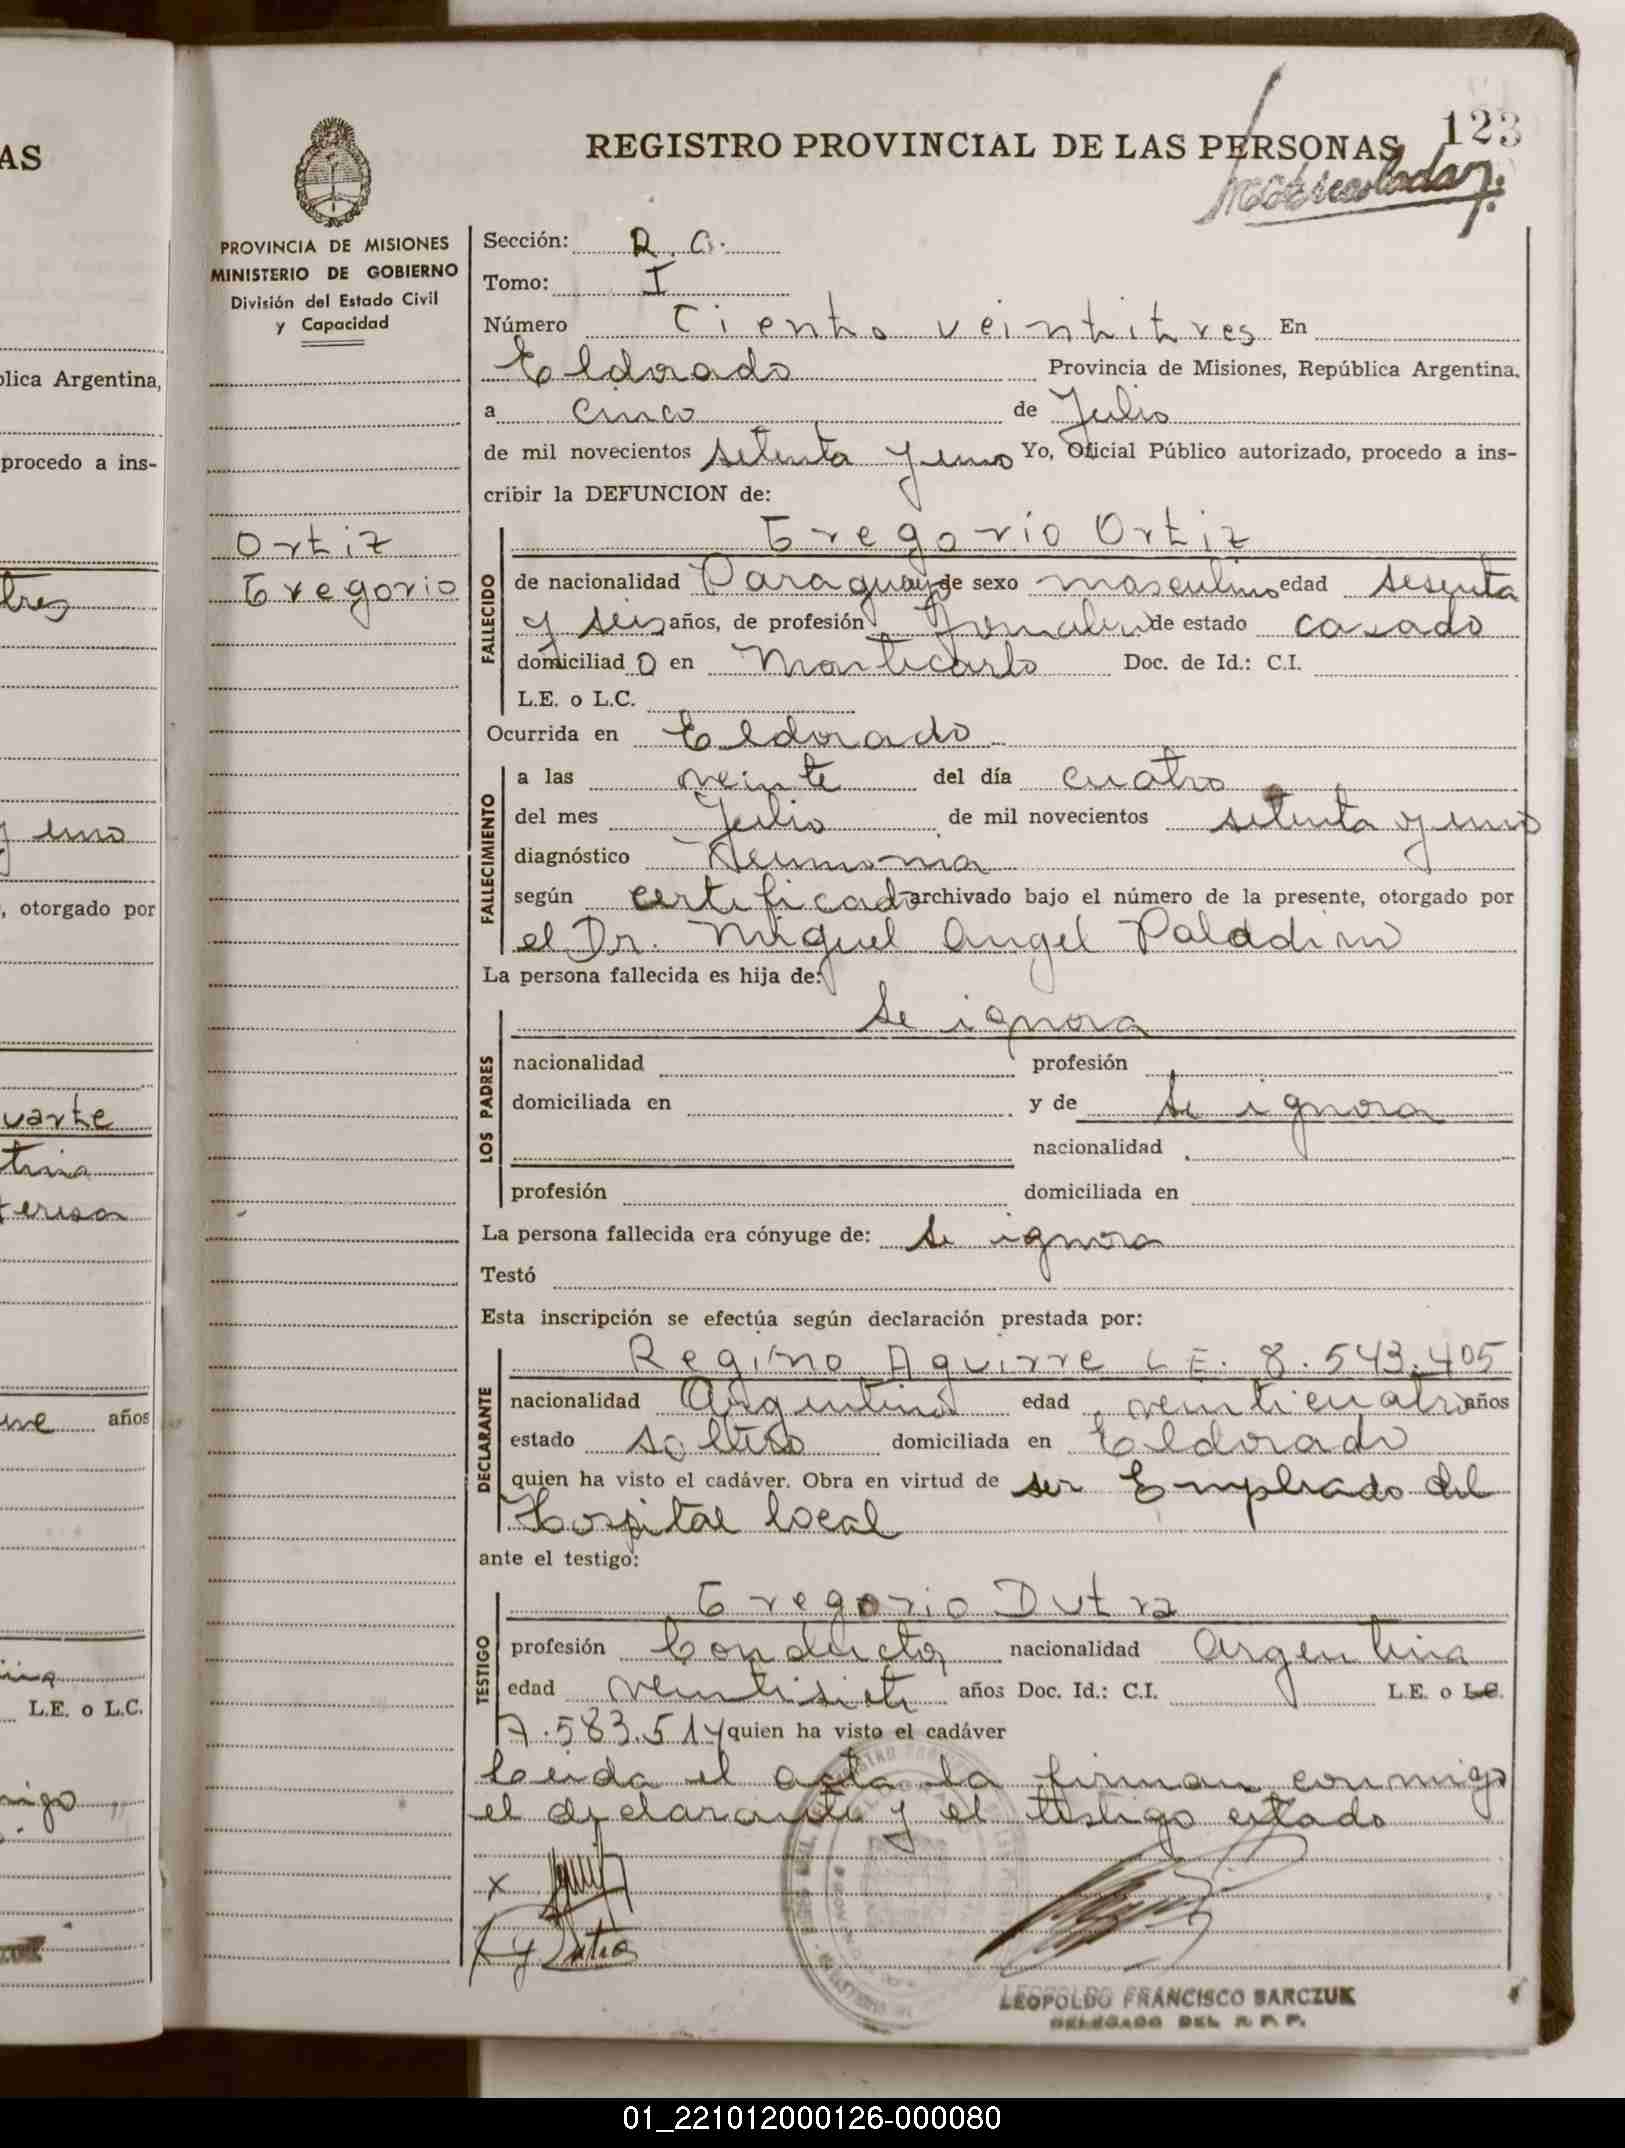 AS
REGISTRO PROVINCIAL DE LAS PERSONAS
123
PROVINCIA DE MISIONES
MINISTERIO DE GOBIERNO
División del Estado Civil
y Capacidad
Sección: R. G.
Tomo: I
Número Ciento veintitres En
Eldorado Provincia de Misiones, República Argentina,
a cinco de Julio
de mil novecientos setenta y uno Yo, Oficial Público autorizado, procedo a ins-
cribir la DEFUNCION de:
Ortiz
Gregorio
FALLECIDO
Gregorio Ortiz
de nacionalidad Paraguayo de sexo masculino edad sesenta
y seis años, de profesión Jornalero de estado casado
domiciliad o en Montecarlo Doc. de Id.: C.I.
L.E. o L.C.
Ocurrida en Eldorado
FALLECIMIENTO
a las veinte del día cuatro
del mes Julio de mil novecientos setenta y uno
diagnóstico Neumonia
según certificado archivado bajo el número de la presente, otorgado por
el Dr. Miguel Angel Paladino
La persona fallecida es hija de:
LOS PADRES
Se ignora
nacionalidad profesión
domiciliada en y de Se ignora
nacionalidad
profesión domiciliada en
La persona fallecida era cónyuge de: Se ignora
Testó
Esta inscripción se efectúa según declaración prestada por:
DECLARANTE
Regino Aguirre L E. 8.543.405
nacionalidad Argentino edad veinticuatro años
estado soltero domiciliada en Eldorado
quien ha visto el cadáver. Obra en virtud de ser Empleado del
Hospital local
ante el testigo:
TESTIGO
Gregorio Dutra
profesión Conductor nacionalidad Argentina
edad veintisiete años Doc. Id.: C.I. L.E. o L.C.
7.583.514 quien ha visto el cadáver
Leida el acta la firman conmigo
el declarante y el testigo citado
X
Dutra
LEOPOLDO FRANCISCO BARCZUK
DELEGADO DEL R. P. P.
lica Argentina,
procedo a ins-
tres
y uno
, otorgado por
uarte
tina
eresa
años
L.E. o L.C.
migo
01_221012000126-000080